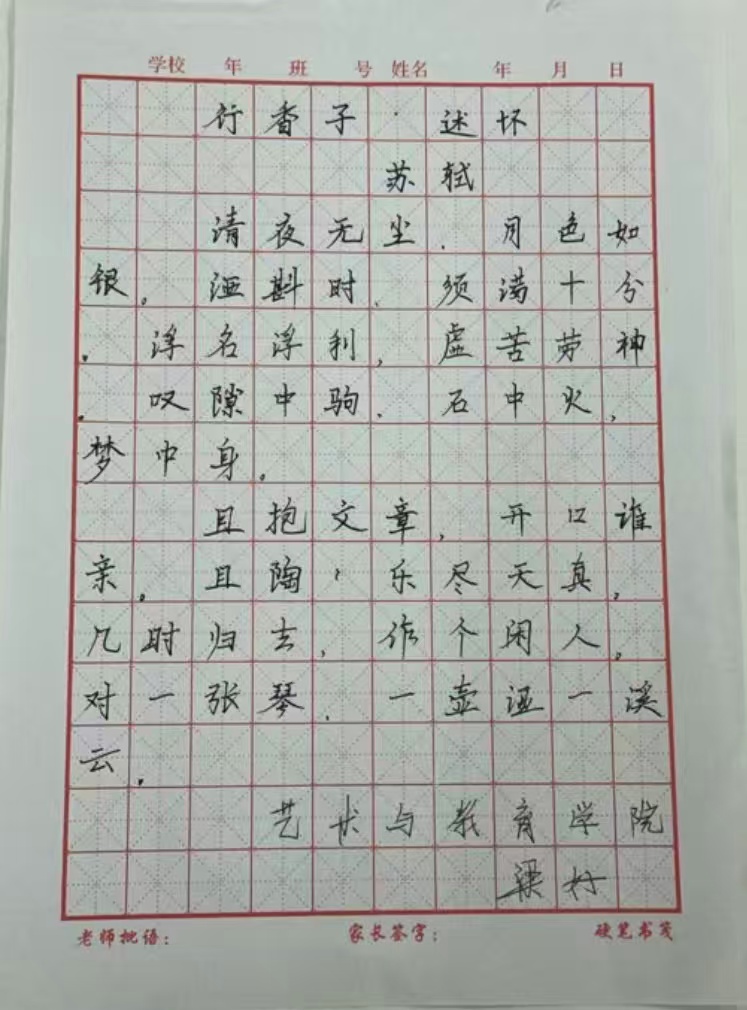 学校 年 班 号 姓名 年 月 日
行香子·述怀
苏轼
清夜无尘．月色如
银。酒斟时、须满十分
．浮名浮利，虚苦劳神
．叹隙中驹．石中火，
梦中身。
且抱文章，开口谁
亲。且陶、乐尽天真。
几时归去，作个闲人。
对一张琴．一壶酒一溪
云。
艺术与教育学院
梁好
老师批语： 家长签字： 硬笔书笺